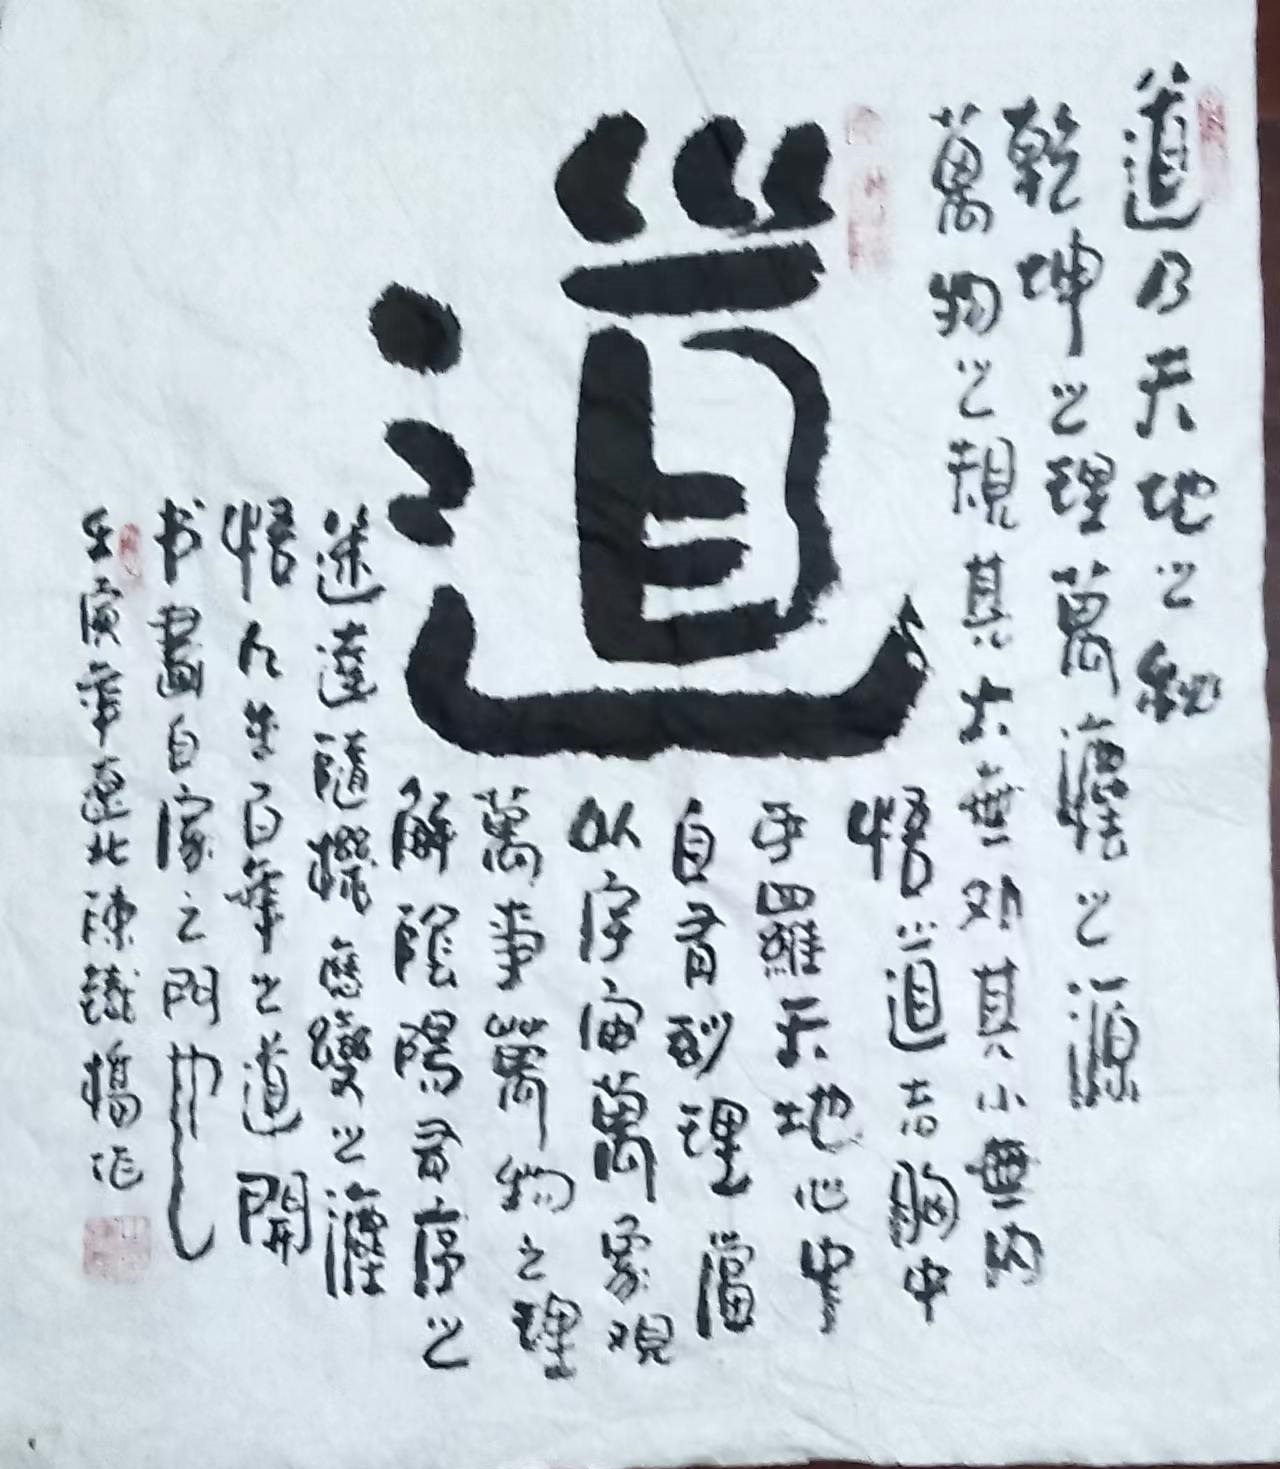 道
道乃天地之秘
乾坤之理萬法之源
萬物之規其大無外其小無内
悟道者胸中
乎四羅天地心中
自有妙理當
以宇宙萬象观
萬事萬物之理
解陰陽有序之
迷達隨機應變之
悟人生百年之道開
书畫自家之門也
壬寅年遼北陳鐵橋作